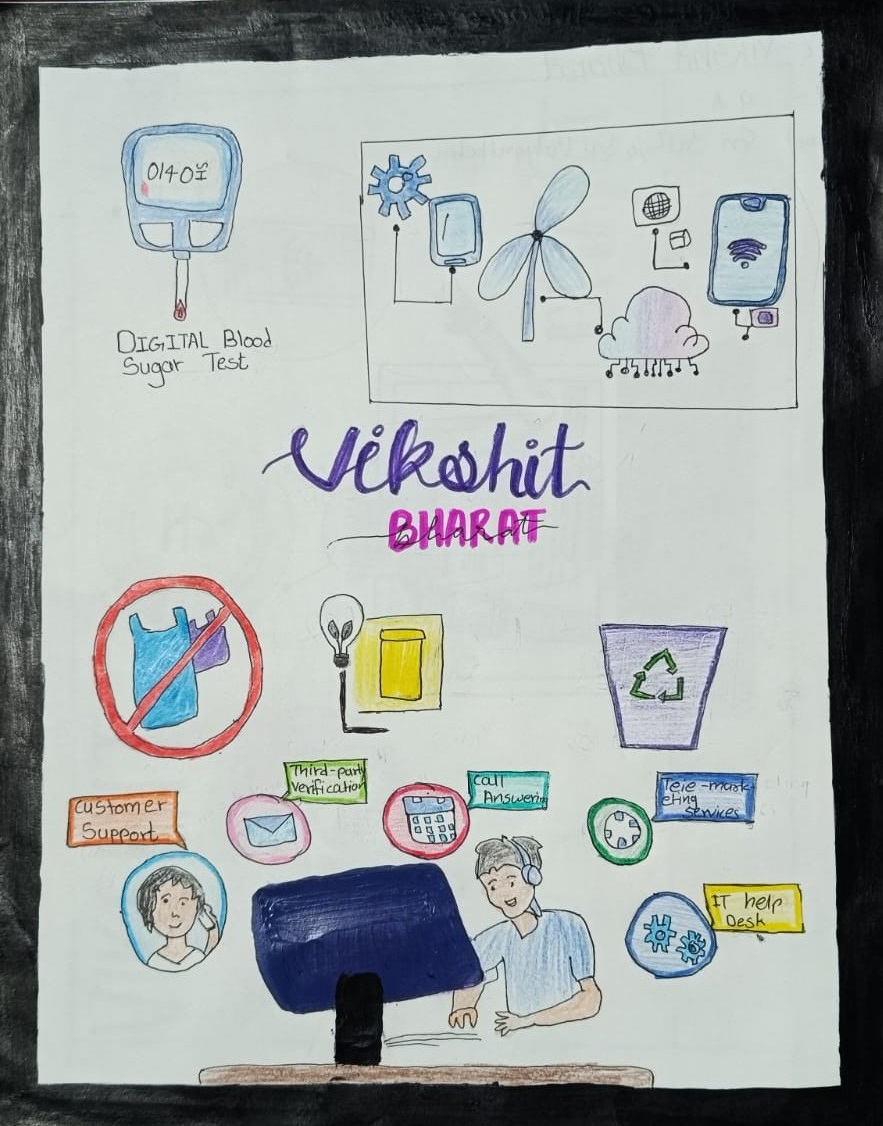 DIGITAL Blood
Sugar Test
Vikshit
BHARAT
Third-party
Verification
Call
Answering
Tele-mark
eting
Services
Customer
Support
IT help
Desk